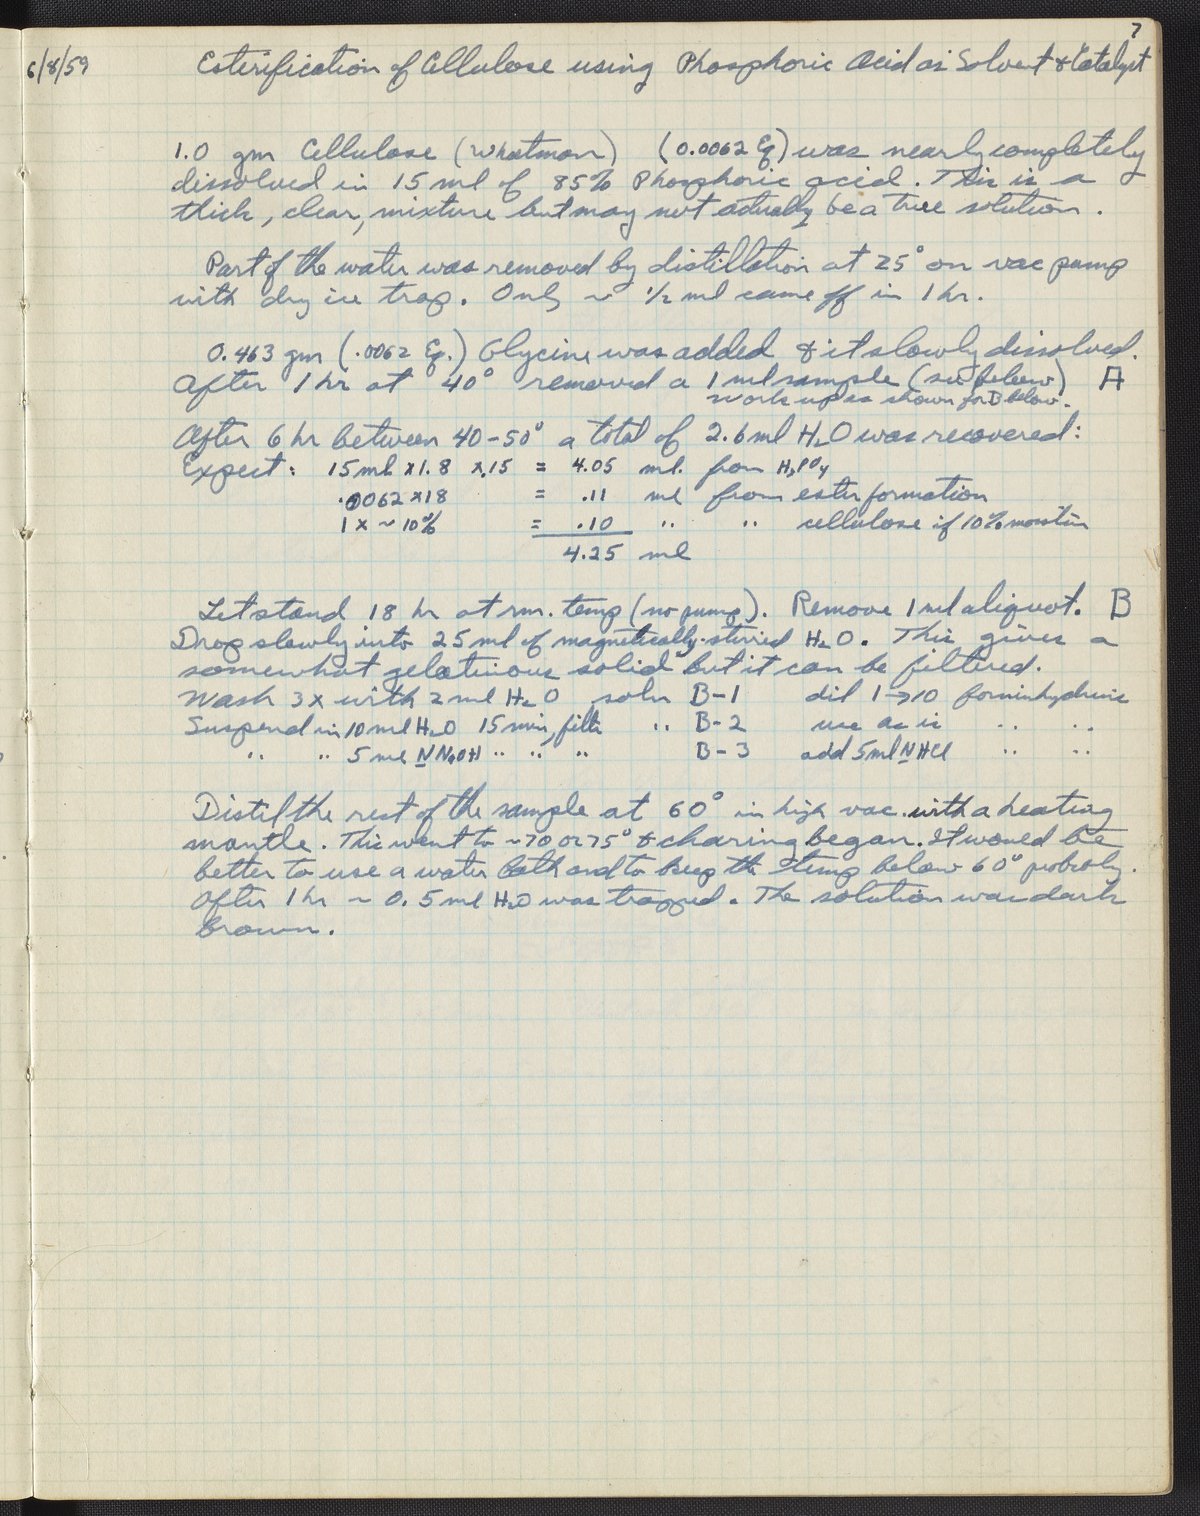 7
6/8/59 Esterification of Cellulose using Phosphoric Acid as Solvent & Catalyst
1.0 gm Cellulose (Whatman) (0.0062 Eq) was nearly completely
dissolved in 15 ml of 85% Phosphoric acid. This is a
thick, clear, mixture but may not actually be a true solution.
Part of the water was removed by distillation at 25° on vac pump
with dry ice trap. Only ~ 1/2 ml came off in 1 hr.
0.463 gm (.0062 Eq.) Glycine was added & it slowly dissolved.
After 1 hr at 40° removed a 1 ml sample (see below) A
work up as shown for B below.
After 6 hr between 40-50° a total of 2.6 ml H2O was recovered:
Expect: 15 ml x 1.8 x .15 = 4.05 ml. from H3PO4
.0062 x 18 = .11 ml from ester formation
1 x ~10% = .10 " " cellulose if 10% moisture
4.25 ml
Let stand 18 hr at rm. temp (no pump). Remove 1 ml aliquot. B
Drop slowly into 25 ml of magnetically-stirred H2O. This gives a
somewhat gelatinous solid but it can be filtered.
Wash 3x with 2 ml H2O soln B-1 dil 1→10 for ninhydrin
Suspend in 10 ml H2O 15 min, filt " B-2 use as is " "
" " 5 ml N NaOH " " " B-3 add 5 ml N HCl " "
Distil the rest of the sample at 60° in high vac. with a heating
mantle. This went to ~70 or 75° & charing began. It would be
better to use a water bath and to keep the temp below 60° probably.
After 1 hr ~ 0.5 ml H2O was trapped. The solution was dark
brown.